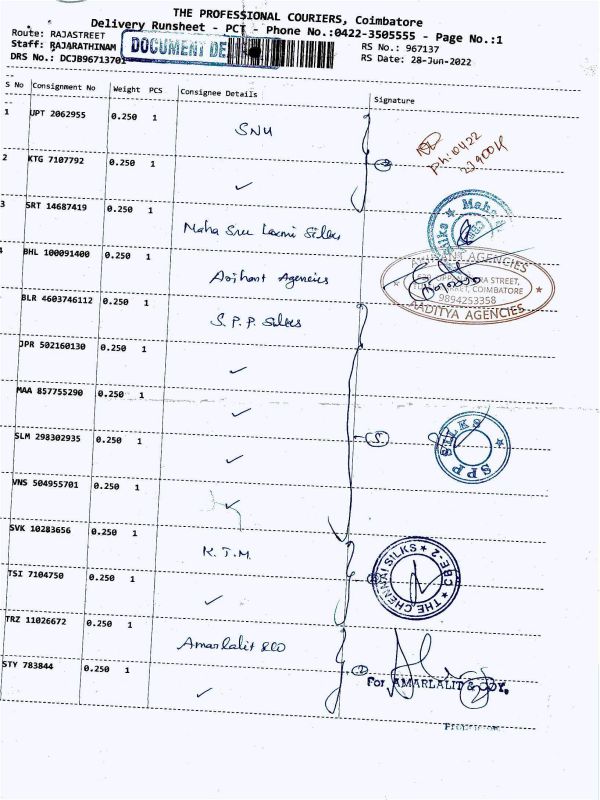 THE PROFESSIONAL COURIERS, Coimbatore
Delivery Runsheet - PCT - Phone No.:0422-3505555 - Page No.:1
Route: RAJASTREET
RS No.: 967137
Staff: RAJARATHINAM
DOCUMENT DE
RS Date: 28-Jun-2022
DRS No.: DCJB96713701
S No Consignment No Weight PCS Consignee Details Signature
1 UPT 2062955 0.250 1 SNU
2 KTG 7107792 0.250 1 ✓ 2
3 SRT 14687419 0.250 1 Maha Sree Laxmi Silks
4 BHL 100091400 0.250 1 Arihant Agencies
ARIHANT AGENCIES
STREET, COIMBATORE
9894253358
AADITYA AGENCIES
BLR 4603746112 0.250 1 S.P.P. Silks
JPR 502160130 0.250 1 ✓
MAA 857755290 0.250 1 ✓
SLM 298302935 0.250 1 ✓ 5
SPP SILKS
VNS 504955701 0.250 1 ✓
SVK 10283656 0.250 1 K.T.M.
THE CHENNAI SILKS ★ CBE-2 ★
TSI 7104750 0.250 1 ✓
TRZ 11026672 0.250 1 Amarlalit &CO
STY 783844 0.250 1 ✓ 2
For AMARLALIT & COY.